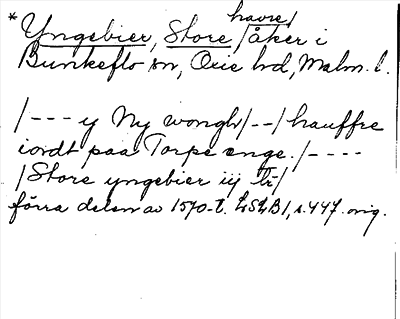 havre/
* Yngebier, Store /åker i
Bunkeflo sn, Oxie hd, Malm. l.
/--- y Ny wongh/--/hauffre
iordt paa Torpe enge./----
/Store yngebier iij /
förra delen av 1570-t. LSLB1, s. 447. orig.